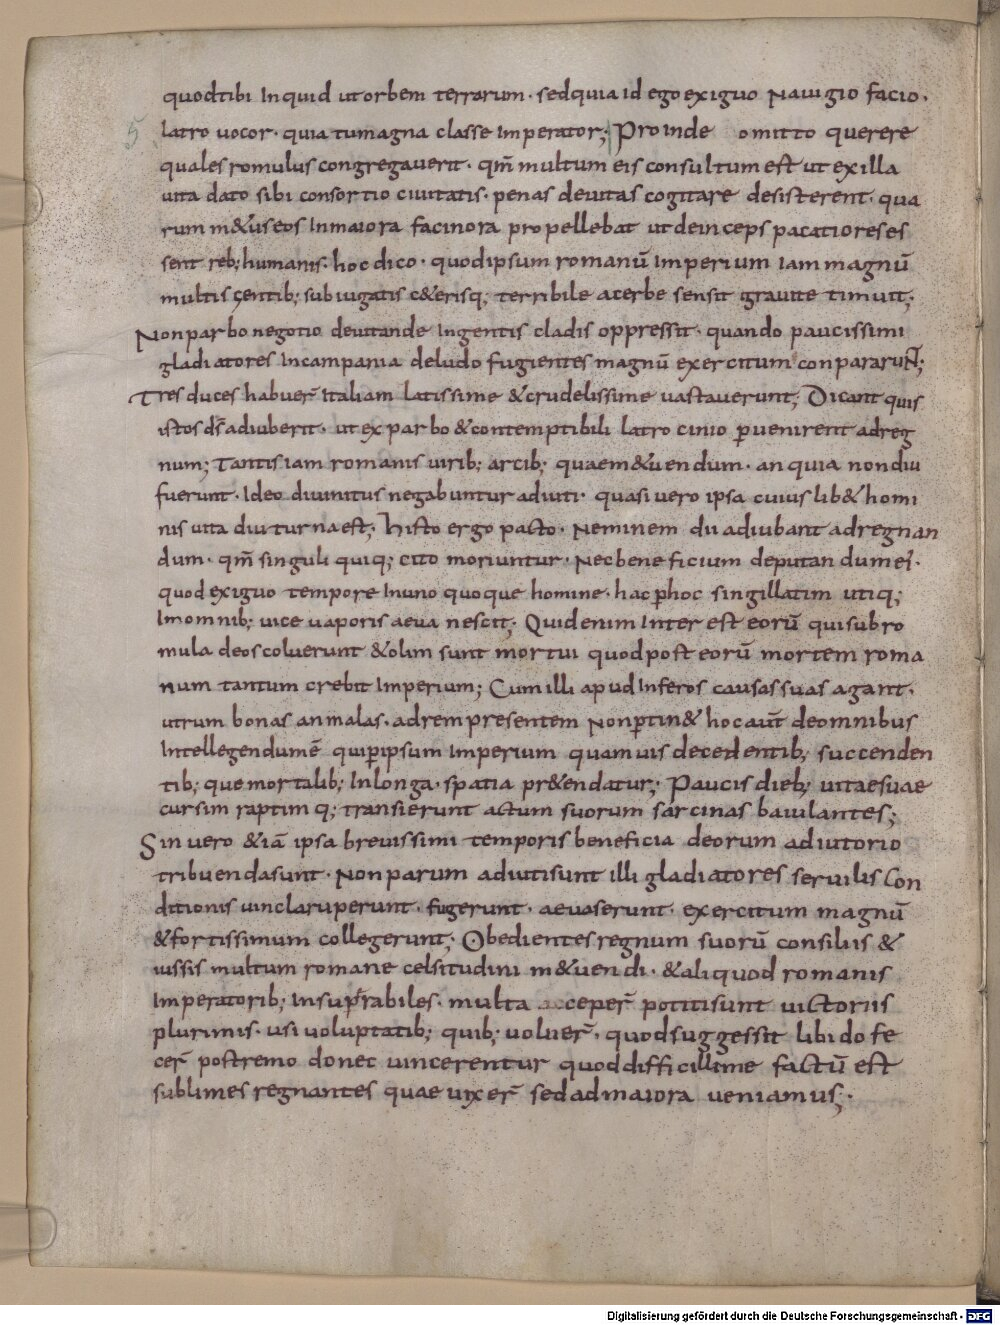 quodtibi Inquid utorbem terrarum· sedquia id egoexiguo Nauigio facio·
5 latro uocor· quia tumagna classe Imperator; Proinde omitto querere
quales romulus congregauerit· qm̄ multum eis consultum est ut ex illa
uita dato sibi consortio ciuitatis· penas deuitas cogitare desisterent· qua
rum m&useos Inmaiora facinora propellebat ut deinceps pacatiores es
sent reb; humanis· hoc dico· quodipsum romanū Imperium Iam magnū
multis gentib; subiugatis c&erisq; terribile acerbe sensit grauite timuit;
Nonparbo negotio deuitande Ingentis cladis oppressit· quando paucissimi
gladiatores Incampania deludo fugientes magnū exercitum conpararuɴ̄;
Tres duces habuer̄ Italiam latissime &crudelissime uastauerunt; Dicant quis
istos ds̄ adiuberit· ut ex parbo &contemptibili latrocinio ꝑuenirent adreg
num; Tantis iam romanis uirib; arcib; quaem&uendum· an quia nondiu
fuerunt· Ideo diuinitus negabuntur adiuti· quasi uero ipsa cuius lib& homi
nis uita diuturna est; histo ergo pacto· Neminem dii adiubant adregnan
dum· qm̄ singuli quiq; cito moriuntur· Necbeneficium deputandumes·
quod exiguo tempore Inuno quoque homine· hac ꝑhoc singillatim utiq;
Imomnib; uice uaporis aeua nescit; Quidenim Inter est eorū quisubro
mula deos coluerunt &olim sunt mortui quodpost eorū mortem roma
num tantum crebit Imperium; Cum illi apud Inferos causas suas agant·
utrum bonas anmalas· adrem presentem Nonꝑtin& hocaut̄ deomnibus
Intellegendumē quiꝑipsum Imperium quamuis decedentib; succenden
tib; quemortalib; Inlonga· spatia pr&endatur; Paucis dieb; uitaesuae
cursim raptimq; transierunt actum suorum sarcinas baiulantes;
Sin uero &iā ipsa breuissimi temporis beneficia deorum adiutorio
tribuendasunt· Nonparum adiutisunt illi gladiatores seruilis Con
ditionis uinclaruperunt· fugerunt· aeuaserunt· exercitum magnū
&fortissimum collegerunt; Obedientes regnum suorū consiliis &
iussis multum romane celsitudini m&uendi· &aliquod romanis
Imperatorib; Insupr̄abiles· multa acceper̄ potitisunt uictoriis
plurimis· usi uoluptatib; quib; uoluer̄· quodsuggessit libido fe
cer̄ postremo donec uincerentur quoddifficillime factū est
sublimes regnantes quae uixer̄ sedadmaiora ueniamus;·
Digitalisierung gefördert durch die Deutsche Forschungsgemeinschaft · DFG